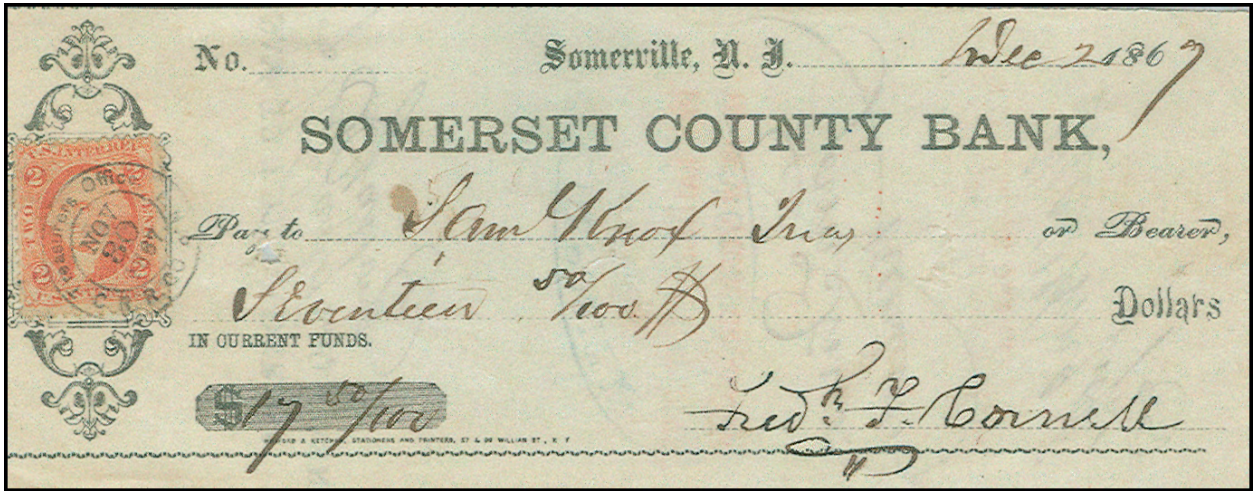 No. Somerville, N. J. Dec 2 1867
SOMERSET COUNTY BANK,
Pay to Sam Knox Treas or Bearer,
Seventeen 50/100 Dollars
IN CURRENT FUNDS.
$17 50/100
Fredk F. Cornell
& KETCHUM, STATIONERS AND PRINTERS, 57 & 59 WILLIAM ST., N Y
U.S. INTER. REV.
2 2
TWO CENTS
2 2
Office
NOV
30